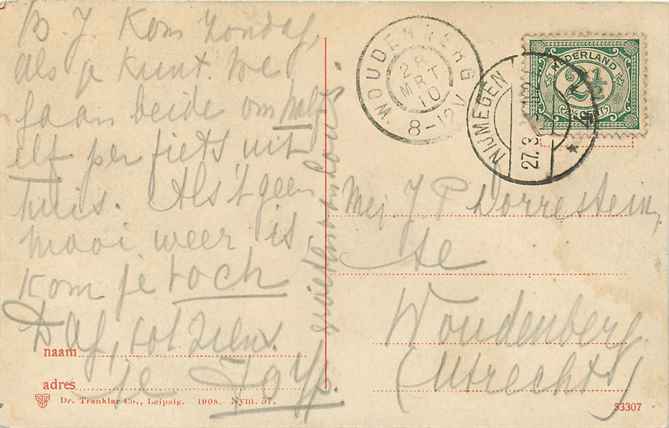 B. J. Kom Zondag,
als je kunt. We
gaan beide om half
elf per fiets uit
huis. Als 't geen
mooi weer is
kom je toch
Dag, tot ziens.
je
naam
adres
Dr. Trenkler Co., Leipzig. 1908. Nym. 57.
WOUDENBERG
28
MRT
10
8-12V
NIJMEGEN
27.3
NEDERLAND
2½
CENT
Mej J P Dorrestein,
te
Woudenberg
(Utrecht)
53307